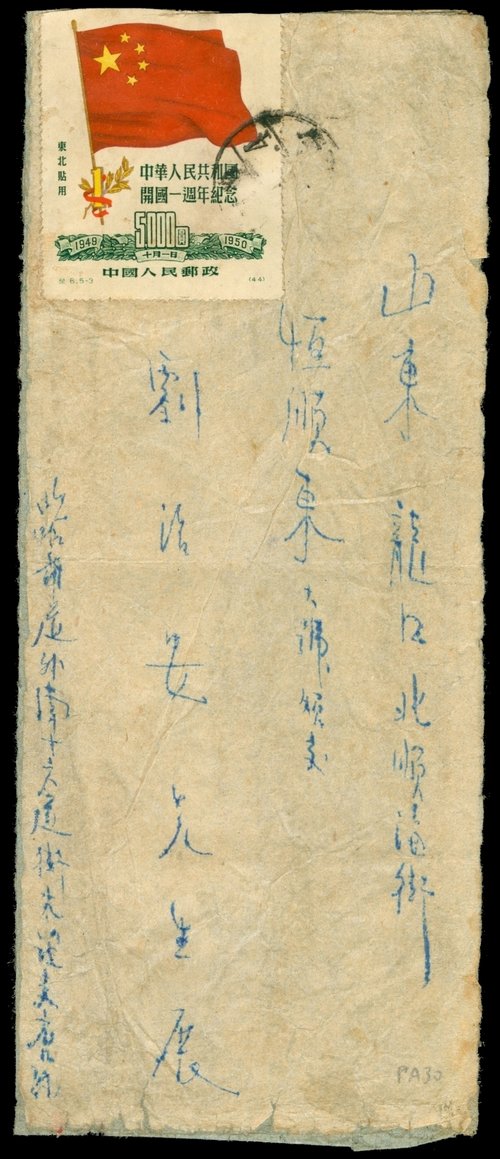 東北貼用
中華人民共和國
開國一週年紀念
5000圓
1949 1950
十月一日
中國人民郵政
紀6.5-3 (44)
山東龍口北順海街
恆順東大號領交
劉治安先生展
哈爾濱道外南十六道街
PA30